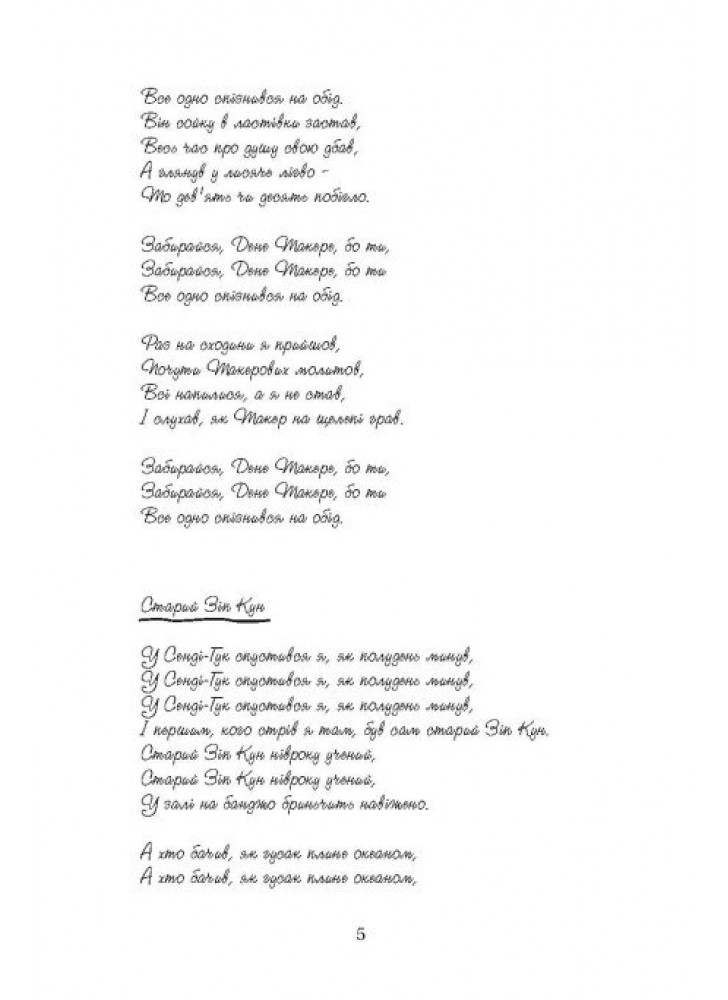 Все одно спізнився на обід.
Він сойку в ластівки застав,
Весь час про душу свою дбав,
А глянув у лисяче лігво –
То дев'ять чи десять побігло.
Забирайся, Дене Такере, бо ти,
Забирайся, Дене Такере, бо ти
Все одно спізнився на обід.
Раз на сходини я прийшов,
Почути Такерових молитов,
Всі напилися, а я не став,
І слухав, як Такер на щелепі грав.
Забирайся, Дене Такере, бо ти,
Забирайся, Дене Такере, бо ти
Все одно спізнився на обід.
Старий Зіп Кун
У Сенді-Гук спустився я, як полудень минув,
У Сенді-Гук спустився я, як полудень минув,
У Сенді-Гук спустився я, як полудень минув,
І першим, кого стрів я там, був сам старий Зіп Кун.
Старий Зіп Кун нівроку учений,
Старий Зіп Кун нівроку учений,
У залі на банджо бриньчить навіжено.
А хто бачив, як гусак плине океаном,
А хто бачив, як гусак плине океаном,
5